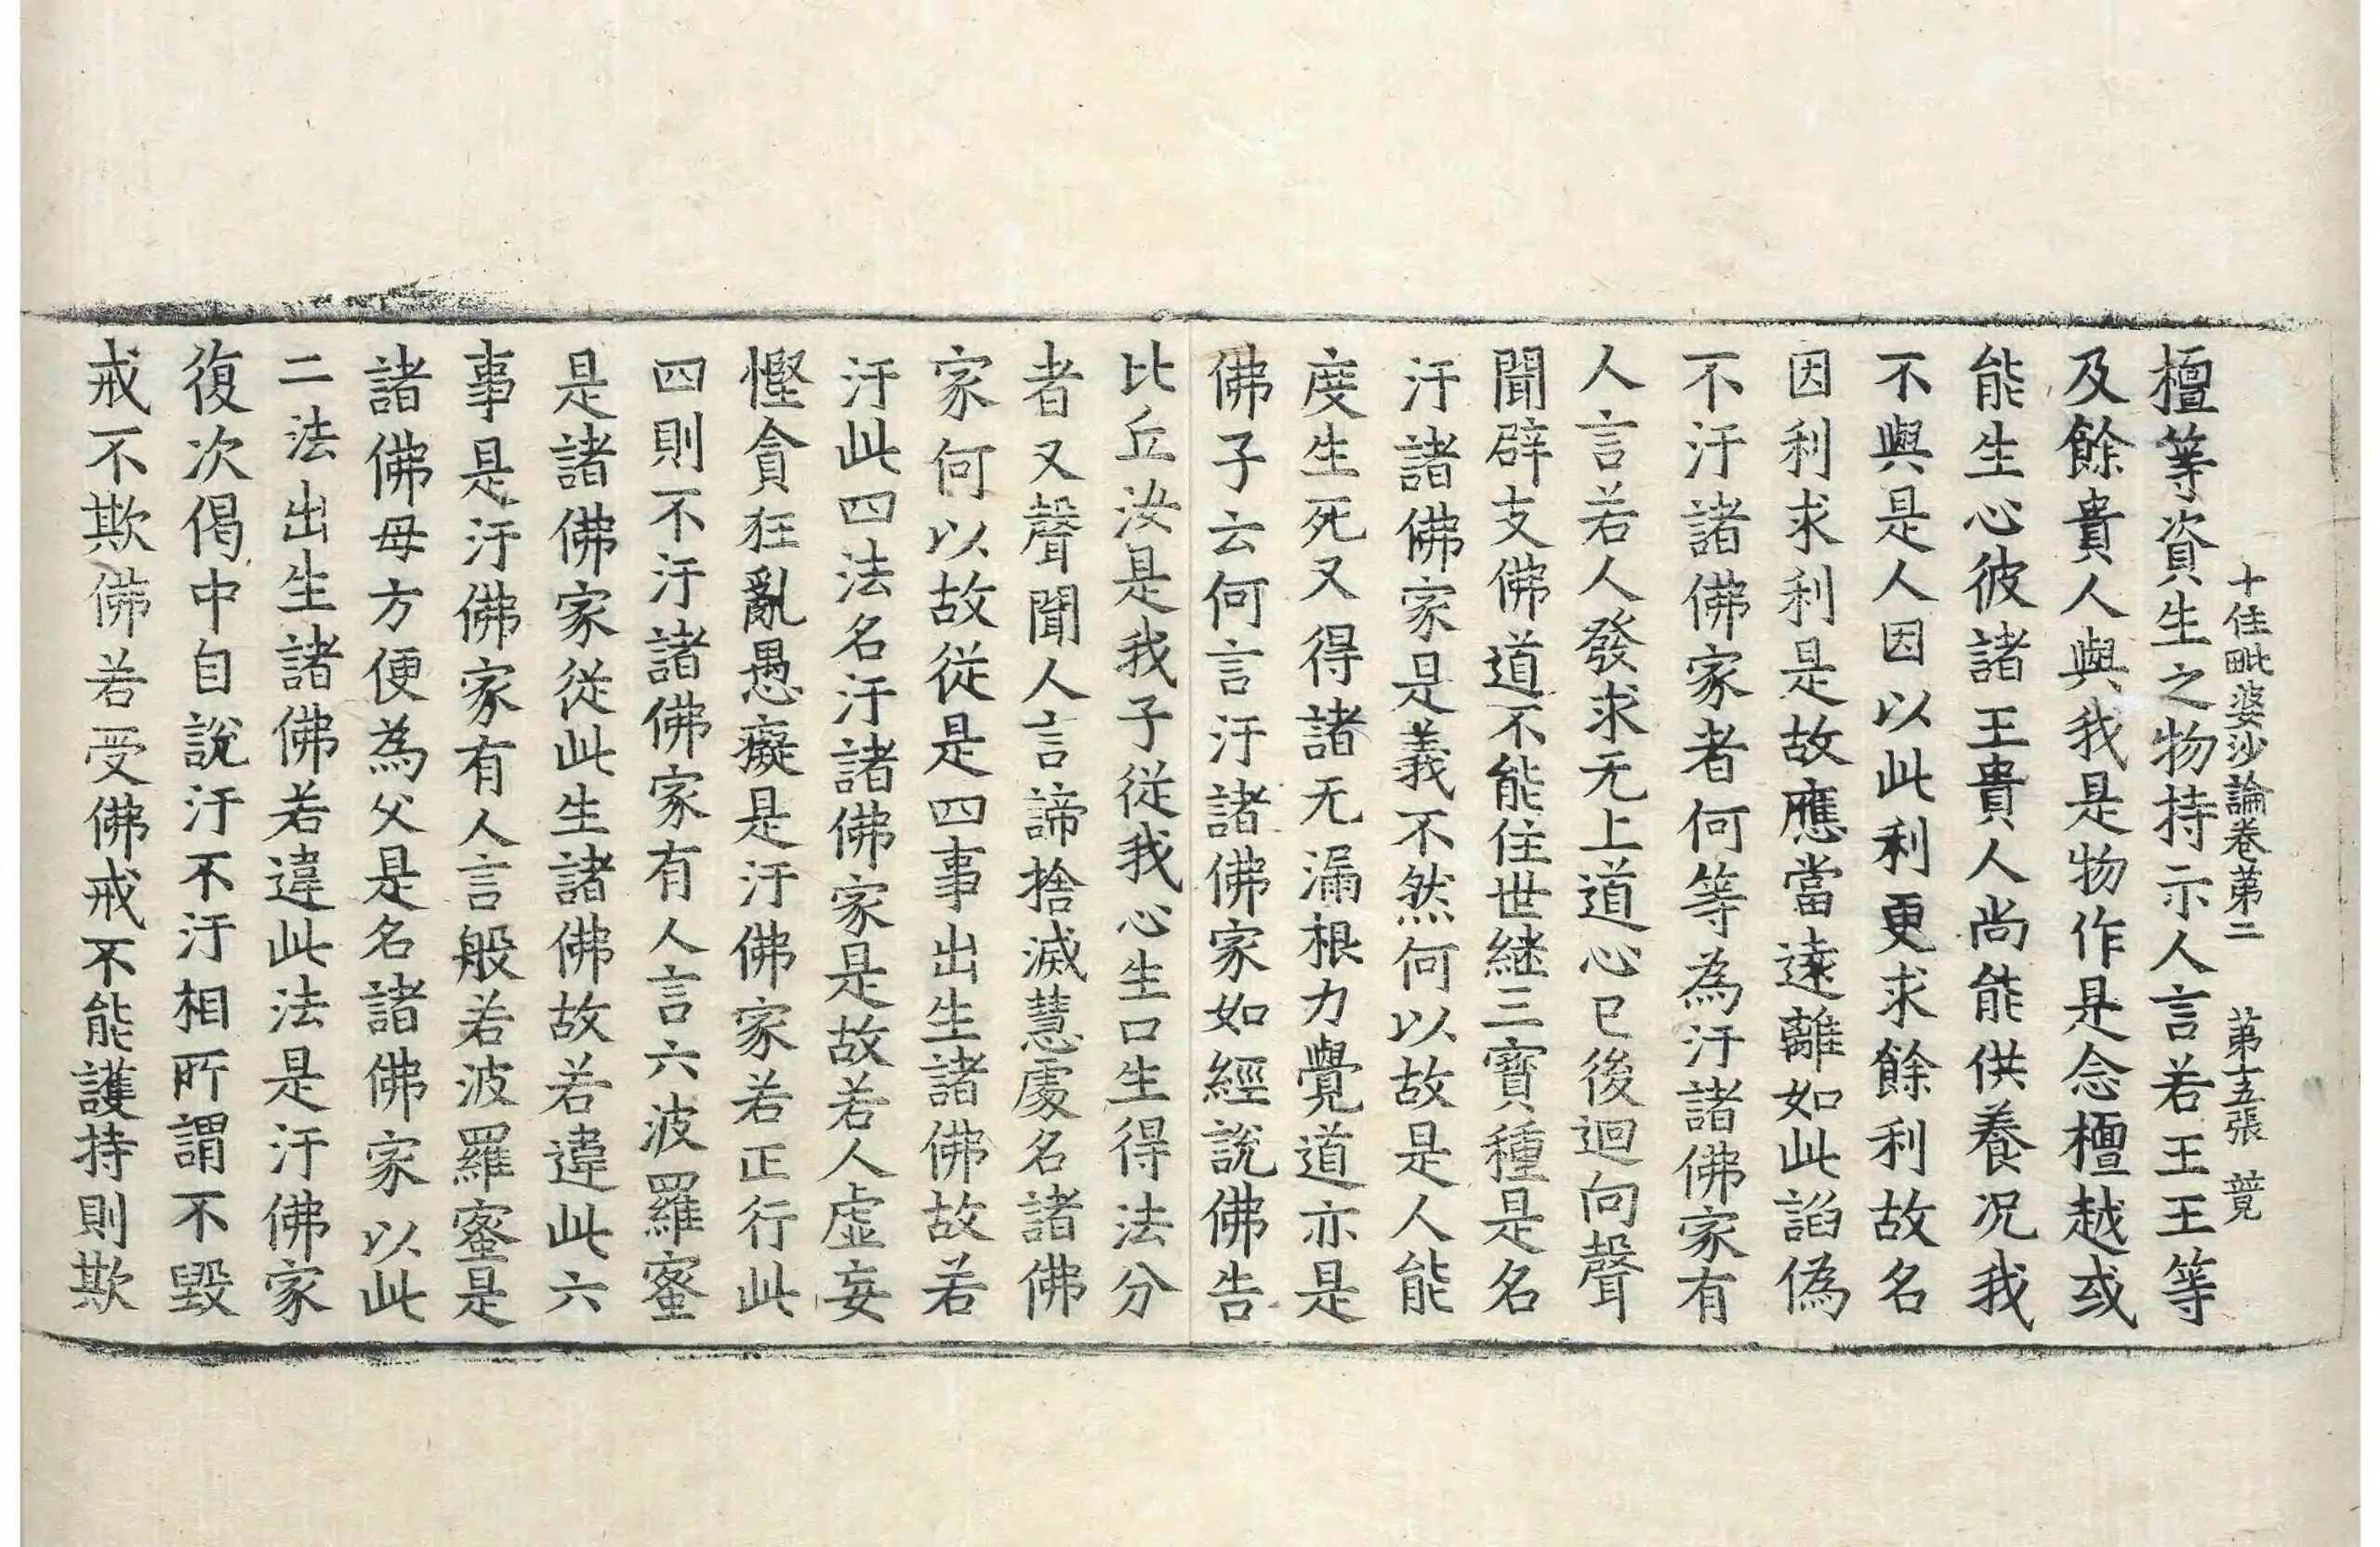 十住毗婆沙論卷第二 第十五張 競
檀等資生之物持示人言若王王等
及餘貴人與我是物作是念檀越或
能生心彼諸王貴人尚能供養況我
不與是人因以此利更求餘利故名
因利求利是故應當遠離如此諂偽
不汙諸佛家者何等為汙諸佛家有
人言若人發求无上道心已後迴向聲
聞辟支佛道不能住世継三寶種是名
汙諸佛家是義不然何以故是人能
度生死又得諸无漏根力覺道亦是
佛子云何言汙諸佛家如經說佛告
比丘汝是我子從我心生口生得法分
者又聲聞人言諦捨滅慧處名諸佛
家何以故從是四事出生諸佛故若
汙此四法名汙諸佛家是故若人虛妄
慳貪狂亂愚癡是汙佛家若正行此
四則不汙諸佛家有人言六波羅蜜
是諸佛家從此生諸佛故若違此六
事是汙佛家有人言般若波羅蜜是
諸佛母方便為父是名諸佛家以此
二法出生諸佛若違此法是汙佛家
復次偈中自說汙不汙相所謂不毀
戒不欺佛若受佛戒不能護持則欺